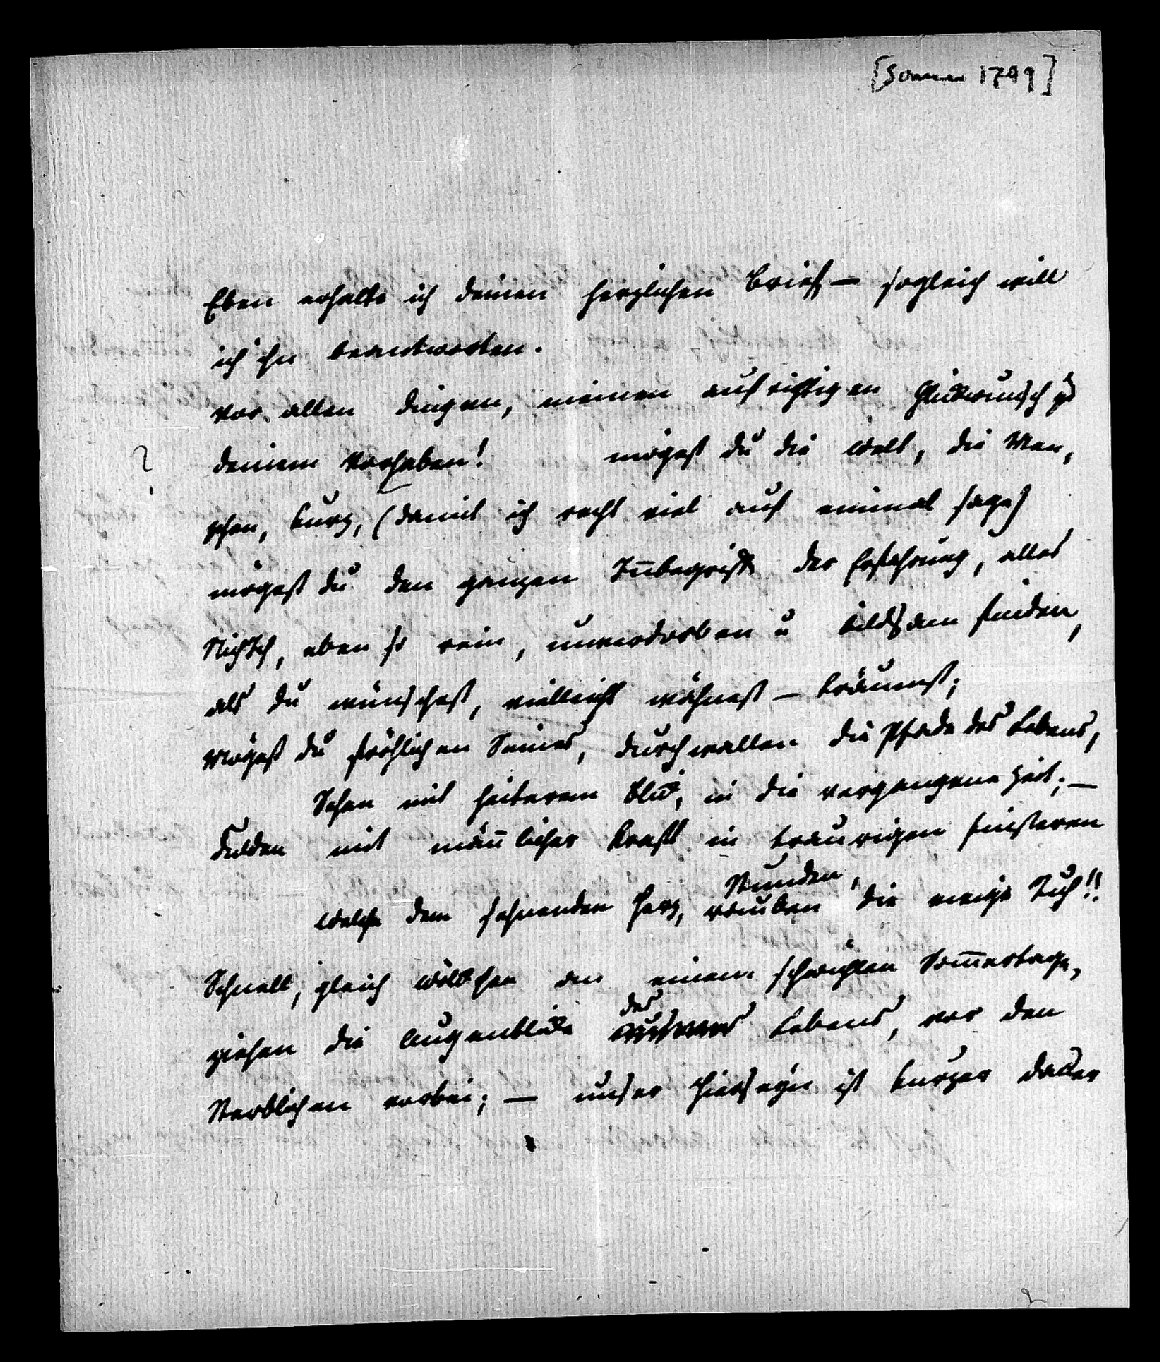 [Sommer 1799]
Eben erhalte ich deinen herzlichen Brief – sogleich will
ich ihn beantworten.
Vor allen dingen, meinen aufrichtigen Glückwunsch zu
?
deinem Vorhaben! mögest du die Welt, die Men,
schen, kurz, (damit ich recht viel auf einmal sage)
mögest du den ganzen Inbegriff der Erfahrung, alles
eben so rein, unverdorben u bildsam finden,
als du wünschest, vielleicht wähnest – träumest;
Mögest du fröhlichen Sinnes, durchwallen die Pfade des Lebens,
Sehen mit heiterem Blick, in die vergangene Zeit; –
Dulden mit männlicher Kraft in traurigen finsteren
Stunden,
Welche dem sehnenden Herz, rauben die ewige Ruh!!
Schnell, gleich Wölkchen an einem schwühlen Sommertage,
des
ziehen die Augenblicke Lebens, vor den
Sterblichen vorbei; – unser Hierseyn ist kurzer dauer